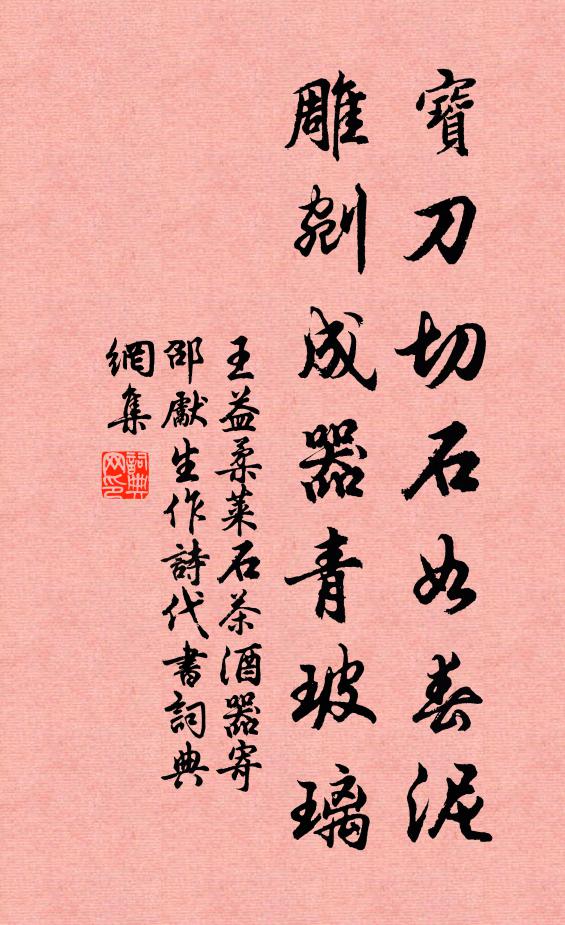 寶刀切石如春泥
雕剜成器青玻璃
王益柔萊石茶酒器寄
邵獻生作詩代書詞典
網集
詞典
網印